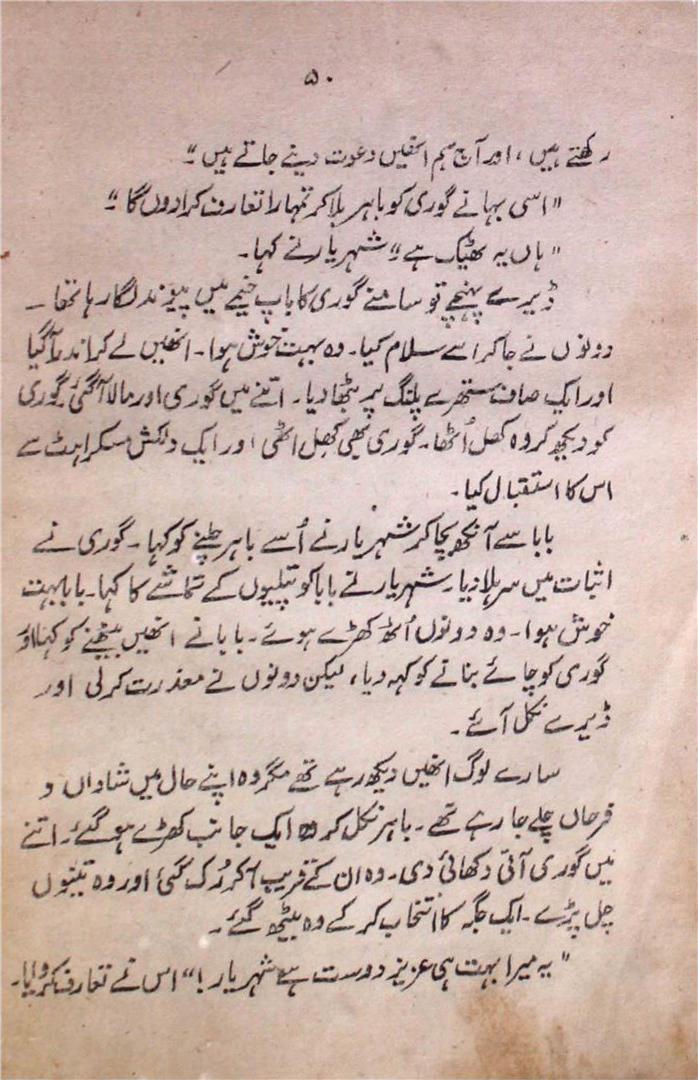 ۵۰
رکھتے ہیں، اور آج ہم انھیں دعوت دینے جاتے ہیں"
"اسی بہانے گوری کو باہر بلا کر تمہارا تعارف کرا دوں گا"
"ہاں یہ ٹھیک ہے" شہریار نے کہا۔
ڈیرے پہنچے تو سامنے گوری کا باپ خیمے میں پیوند لگا رہا تھا۔
دونوں نے جا کر اسے سلام کیا۔ وہ بہت خوش ہوا۔ انھیں لے کر اندر آ گیا
اور ایک صاف ستھرے پلنگ پر بٹھا دیا۔ اتنے میں گوری اور مالا آ گئی۔ گوری
کو دیکھ کر وہ کھل اُٹھا۔ گوری بھی کھل اٹھی اور ایک دلکش مسکراہٹ سے
اس کا استقبال کیا۔
بابا سے آنکھ بچا کر شہریار نے اُسے باہر چلنے کو کہا۔ گوری نے
اثبات میں سر ہلا دیا۔ شہریار نے بابا کو پتلیوں کے تماشے کا کہا۔ بابا بہت
خوش ہوا۔ وہ دونوں اُٹھ کھڑے ہوئے۔ بابا نے انھیں بیٹھنے کو کہا اور
گوری کو چائے بنانے کو کہہ دیا، لیکن دونوں نے معذرت کر لی اور
ڈیرے نکل آئے۔
سارے لوگ انھیں دیکھ رہے تھے مگر وہ اپنے حال میں شاداں و
فرحاں چلے جا رہے تھے۔ باہر نکل کر وہ ایک جانب کھڑے ہو گئے۔ اتنے
میں گوری آتی دکھائی دی۔ وہ ان کے قریب آ کر رُک گئی اور وہ تینوں
چل پڑے۔ ایک جگہ کا انتخاب کر کے وہ بیٹھ گئے۔
"یہ میرا بہت ہی عزیز دوست ہے شہریار!" اس نے تعارف کروایا۔